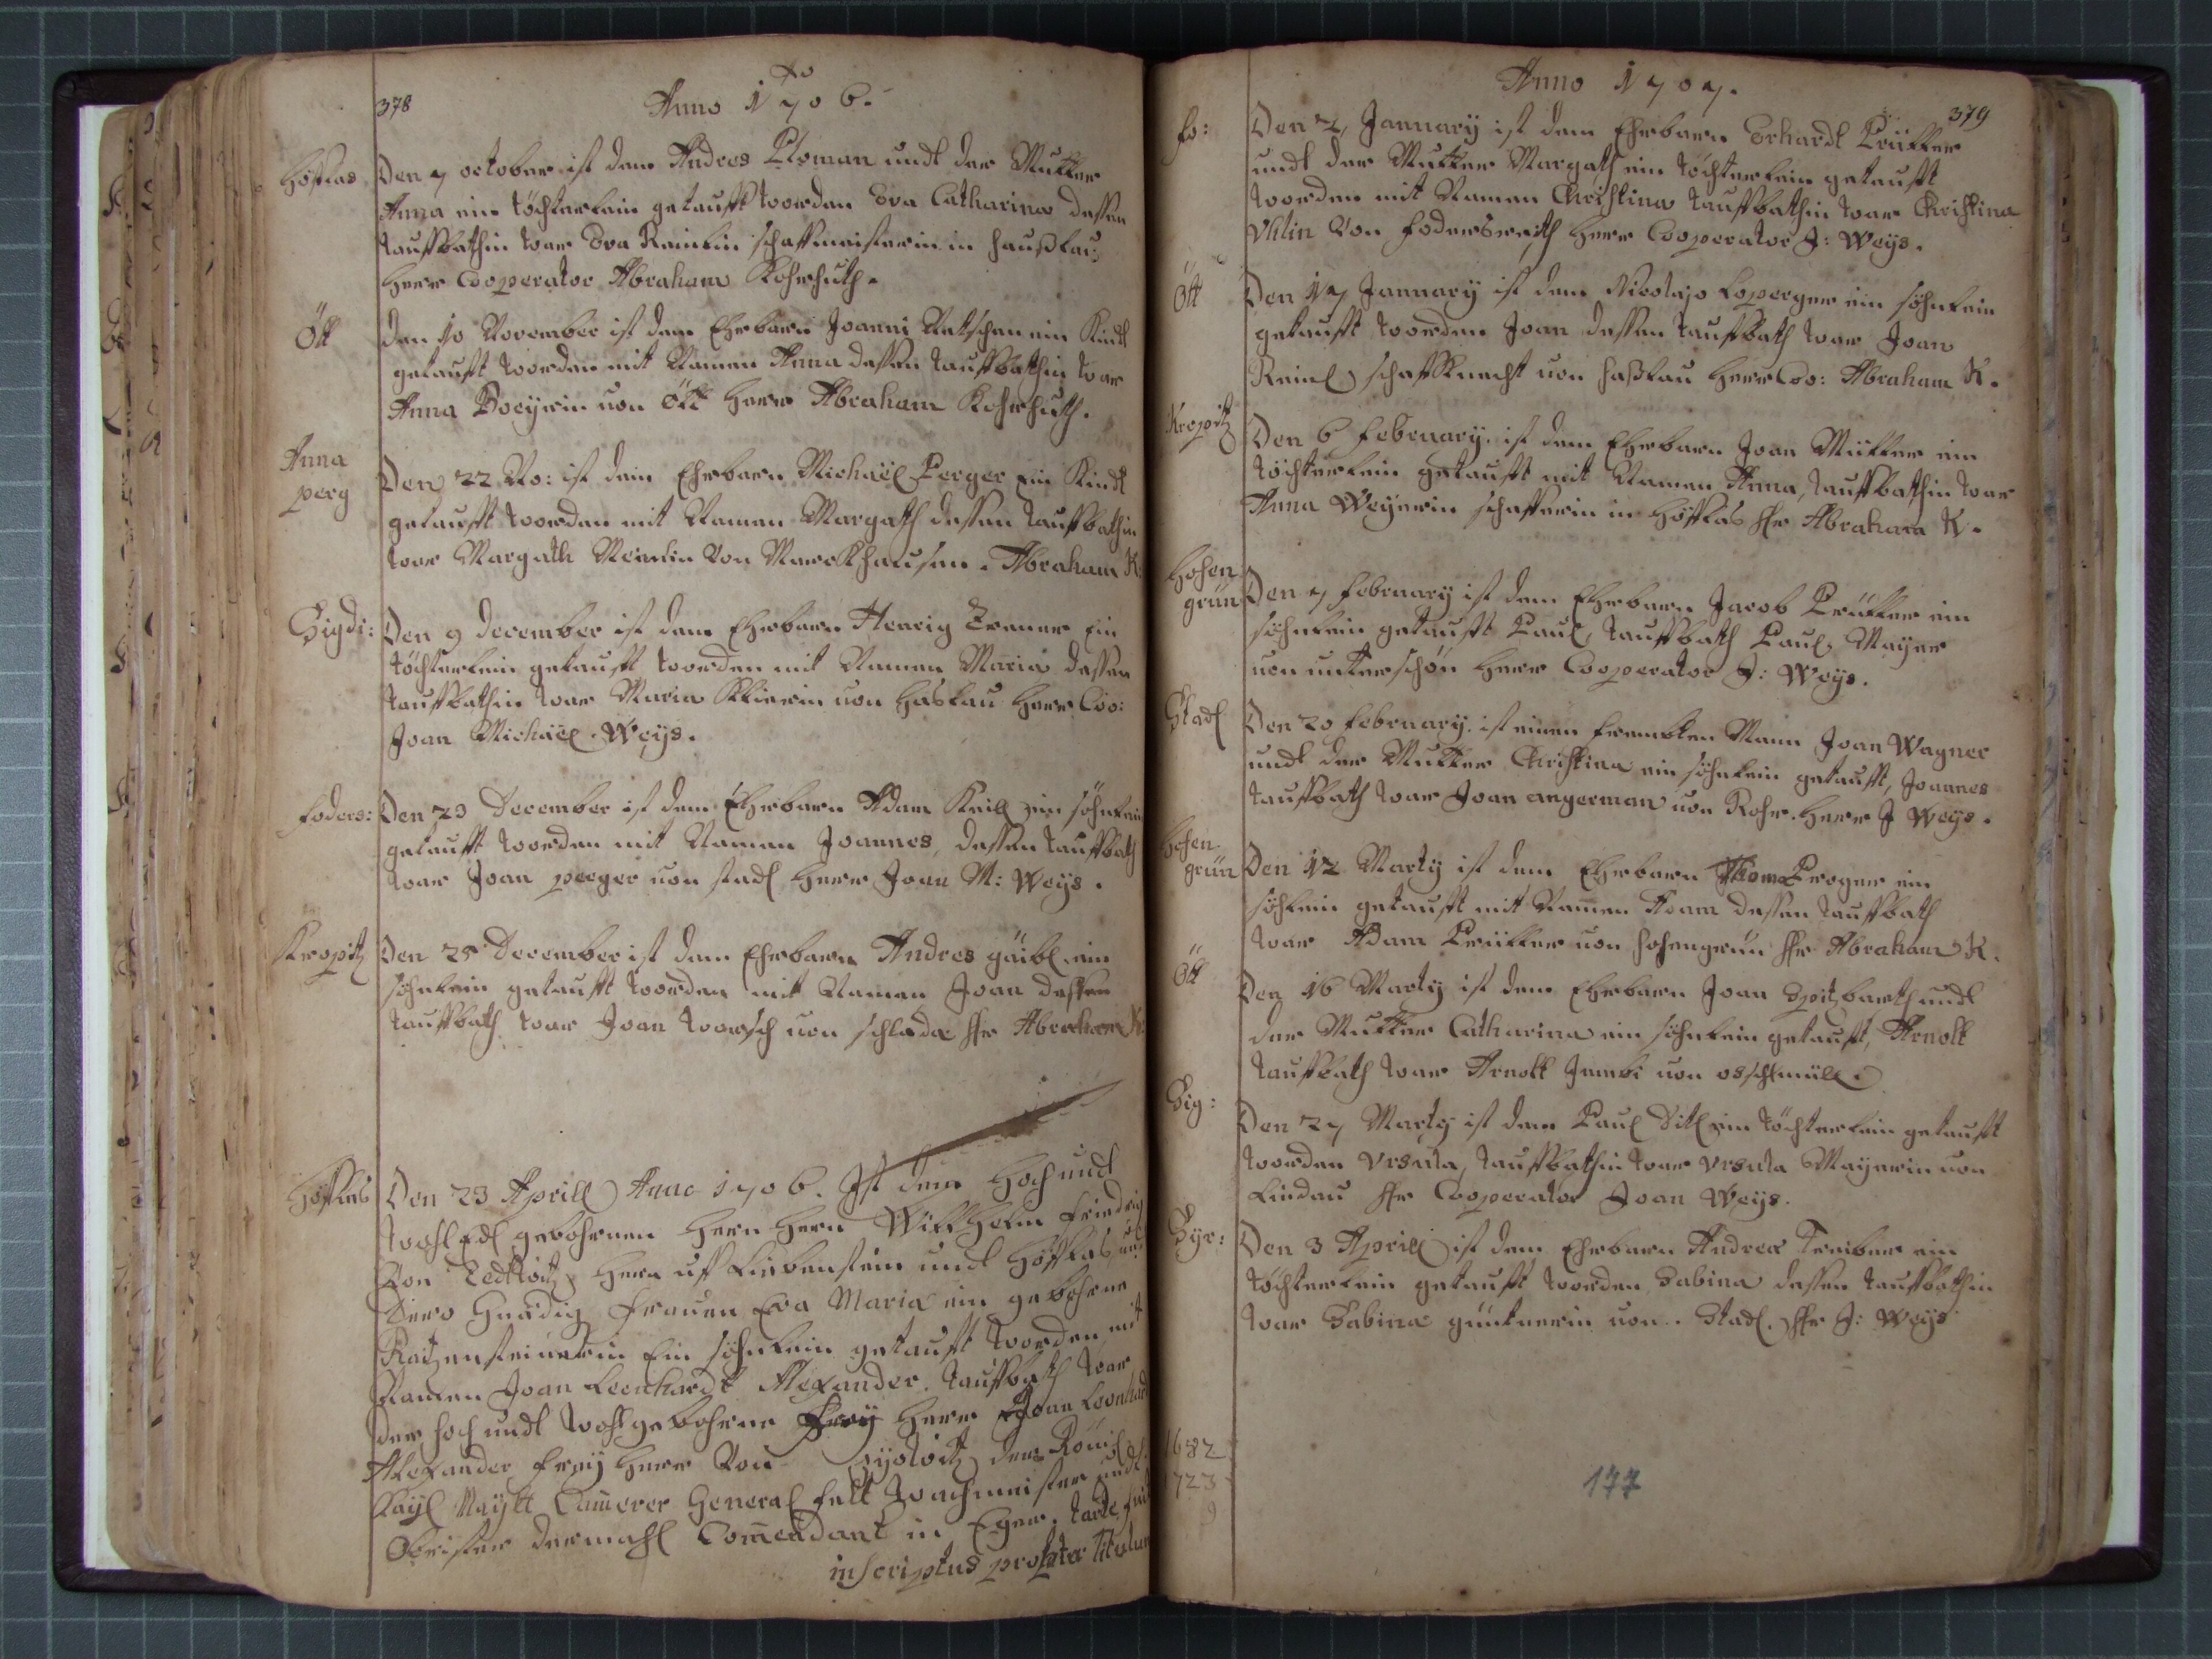 378
Anno 1706.
Höflas
Den 7 october ist dem Andres Ploman undt der Mutter
Anna ein töchterlein getaufft worden Eva Catharina dessen
tauffbathin war Eva Reinlin schaffmeisterin in Haußlau
Herr Cooperator Abraham Kohrhuth.
Ött
den 10 November ist dem Ehrbarn Joanni Ratschen ein Kindt
getaufft worden mit Namen Anna dessen tauffbathin war
Anna von Ött Herr Abraham Kohrhuth.
Anna
perg
Den 22 No: ist dem Ehrbarn Michaël Perger ein Kindt
getaufft worden mit Namen Margath dessen tauffbathin
war Margath Reinlin Von Marckhausen. Abraham K:
Sigdi:
Den 9 December ist dem Ehrbarn Henrig ein
töchterlein getaufft worden mit Namen Maria dessen
tauffbathin war Maria von Haslau Herr Coo:
Joan Michaël Weÿs.
foders:
Den 23 December ist dem Ehrbarn Adam Krill ein söhnlein
getaufft worden mit Namen Joannes, dessen tauffbath
war Joan perger von stadl Herr Joan M: Weÿs.
Kropitz
Den 25 December ist dem Ehrbarn Andres ein
söhnlein getaufft worden mit Namen Joan dessen
tauffbath war Joan von schlada Hr Abraham K:
Höflas
Den 23 Aprill Anno 1706. Ist dem Hoch undt
wohl Edl gebohrnen Herrn Herrn Willhelm Friedrich
Von Zedtwitz Herr uf Liebenstein undt Höflas, undt
Dero Gnädig Frauen Eva Maria ein gebohrne
Raitzensteinerin Ein söhnlein getaufft worden mit
Namen Joan Leenhardt Alexander. tauffbath war
der hoch undt wohlgebohrne Herr Joan Leonhardt
Alexander freÿ Herr Von der Römisch
Kaÿl Maÿtt Cammerer General felt wachmeister undt
Obrister dermahl Commendant in Eger. tarde fuit
inscriptus propter titulum
379
Anno 1707.
fo:
Den 2 January ist dem Ehrbarn Erhardt Prütter
undt der Mutter Margath ein töchterlein getaufft
worden mit Namen Christina tauffbathin war Christina
Uhlin Von fodersreith Herr Cooperator J: Weÿs.
Ött
Den 17 January ist dem Nicolajo Loperger ein söhnlein
getaufft worden Joan dessen tauffbath war Joan
Reinl schaffknecht von Haßlau Herr Coo: Abraham K.
Kropitz
Den 6 february. ist dem Ehrbarn Joan Müller ein
töchterlein getaufft mit Namen Anna, tauffbathin war
Anna Weÿerin schafferin in Höflas Hr Abraham K.
Hohen
grün
Den 7 february ist dem Ehrbarn Jacob Prütter ein
söhnlein getaufft Paul, tauffbath Paul Maÿer
von unterschön Herr Cooperator J: Weÿs.
Stadl
Den 20 february. ist einen frembten Mann Joan Wagner
undt der Mutter Christina ein söhnlein getaufft, Joannes
tauffbath war Joan angerman von Rohr. Herr J Weÿs.
Hohen
grün
Den 12 Marty ist dem Ehrbarn Thoma Proger ein
söhlein getaufft mit Namen Adam dessen tauffbath
war Adam Prütter von hohengrün Hr Abraham K.
Ött
Den 16 Marty ist dem Ehrbarn Joan Spitzbarth undt
der Mutter Catharina ein söhnlein getaufft, Arnolt
tauffbath war Arnolt von
Sig:
Den 27 Marty ist dem Paul Ditl ein töchterlein getaufft
worden Ursula, tauffbathin war Ursula Maÿerin von
Lindau Hr Cooperator Joan Weÿs.
Sÿr:
Den 3 Aprill ist dem Ehrbarn Andrea Treiber ein
töchterlein getaufft worden Sabina dessen tauffbathin
war Sabina güntnerin von Stadl. Hr J: Weÿs
1682
1723
9
177